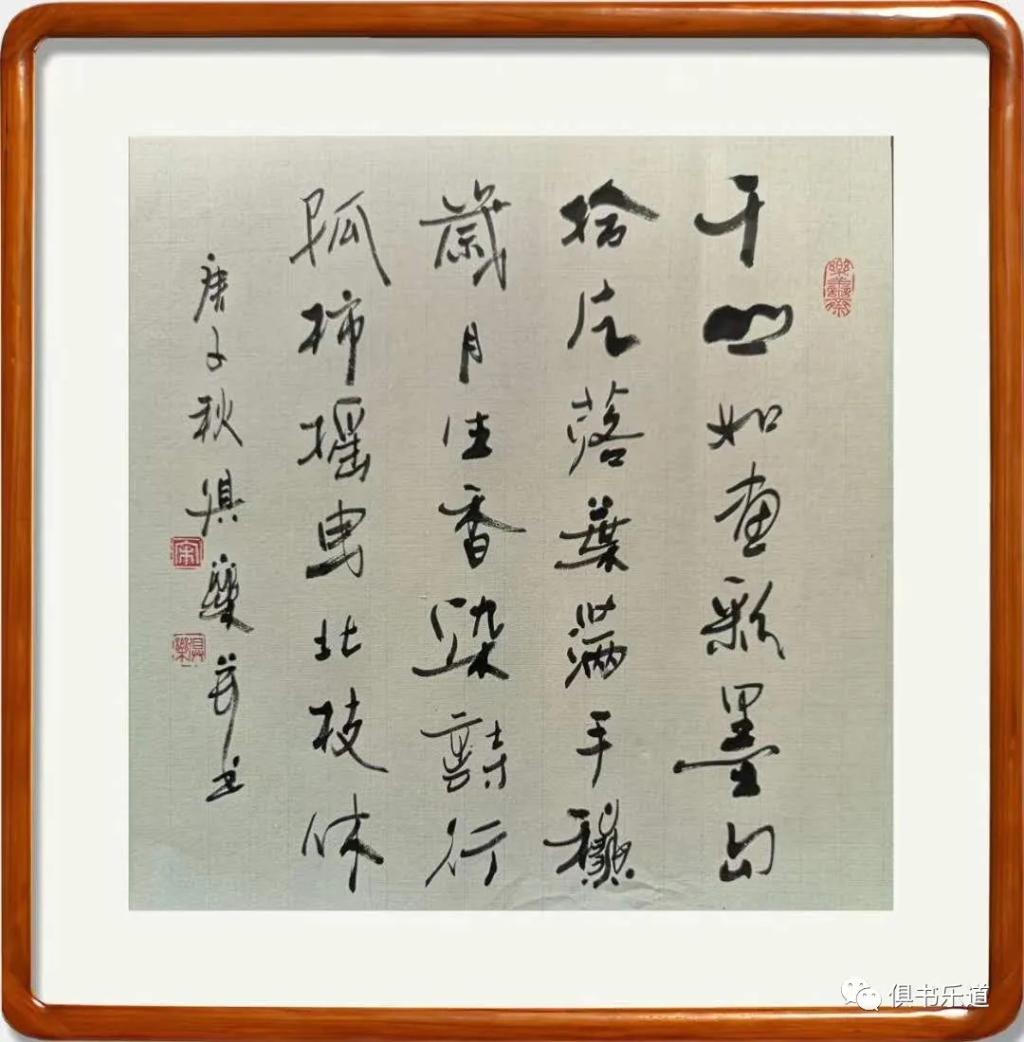 千山如画彩墨勾
拾片落葉满手穐
歲月生香染詩行
孤柿摇曳北枝休
庚子秋俱樂并书
俱书乐道